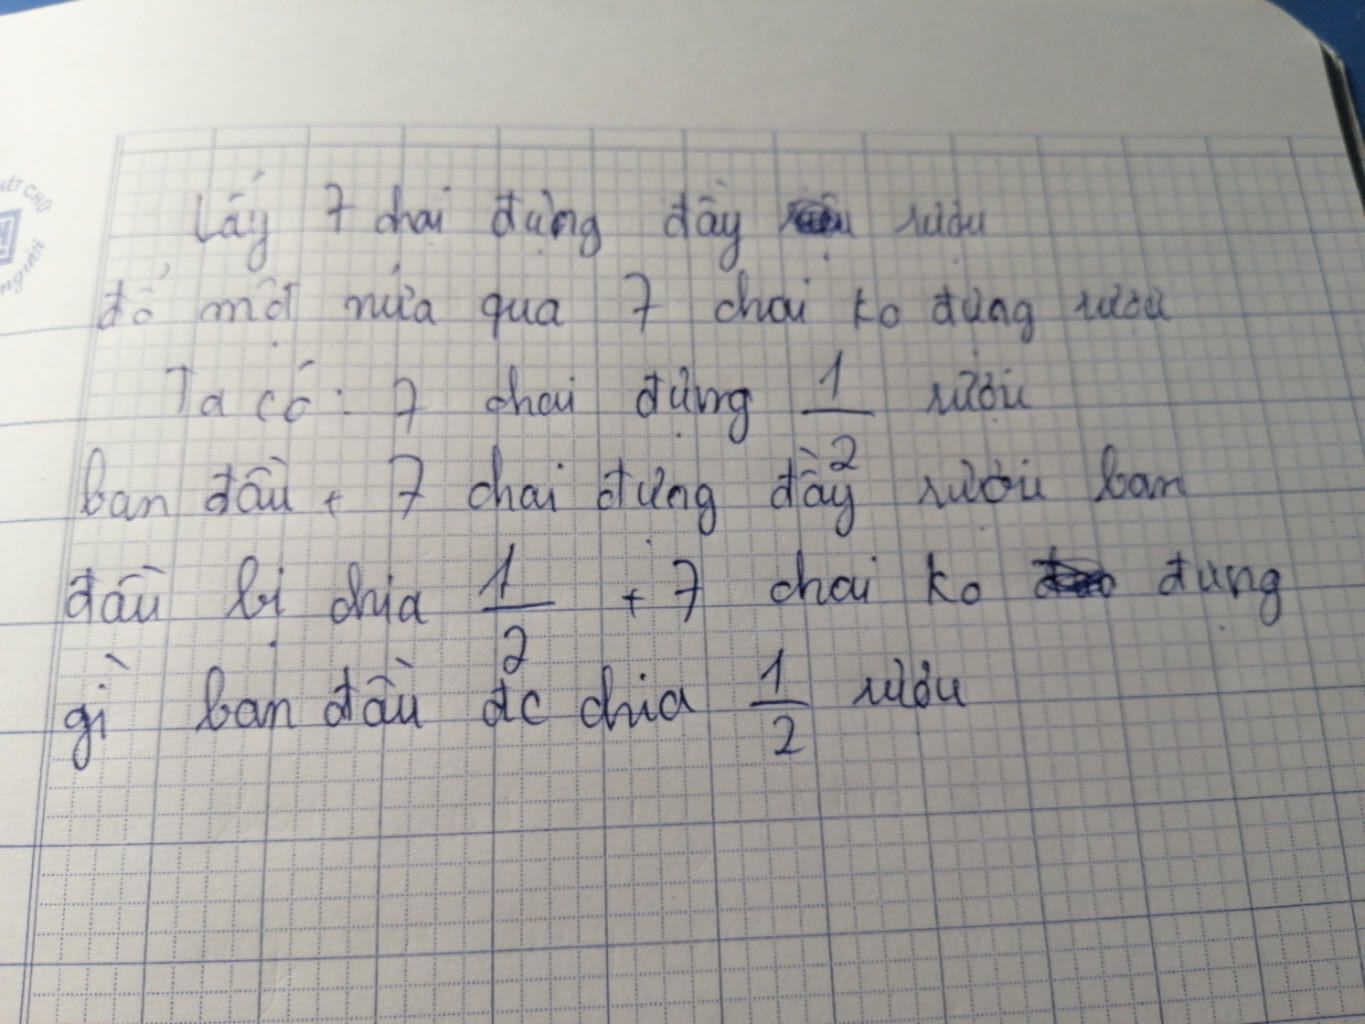 Lấy 7 chai đựng đầy rượu
đổ một nửa qua 7 chai ko đựng rượu
Ta có: 7 chai đựng 1/2 rượu
ban đầu + 7 chai đựng đầy rượu ban
đầu bị chia 1/2 + 7 chai ko đựng
gì ban đầu đc chia 1/2 rượu
NÉT CHỮ
người